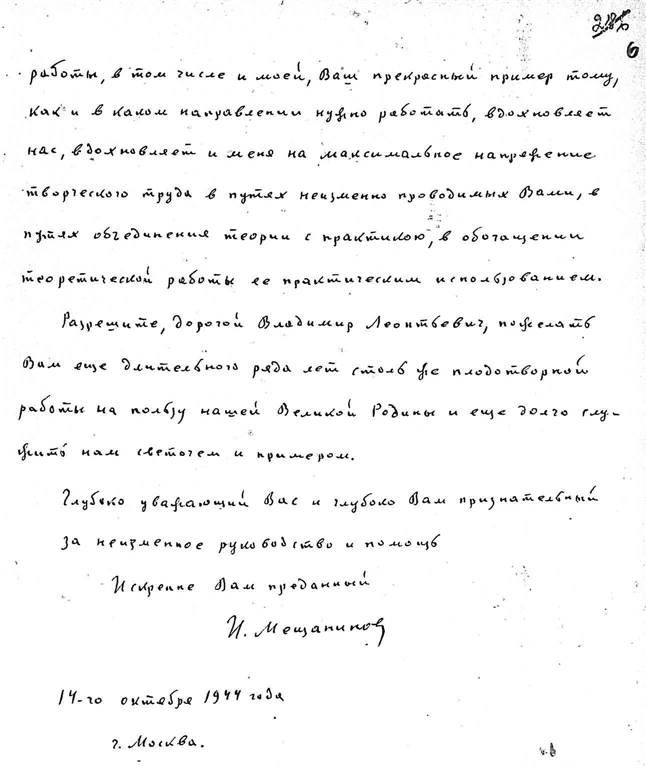 6
работы, в том числе и моей, Ваш прекрасный пример тому,
как и в каком направлении нужно работать, вдохновляет
нас, вдохновляет и меня на максимальное напряжение
творческого труда в путях неизменно проводимых Вами, в
путях объединения теории с практикою, в обогащении
теоретической работы ее практическим использованием.
Разрешите, дорогой Владимир Леонтьевич, пожелать
Вам еще длительного ряда лет столь же плодотворной
работы на пользу нашей Великой Родины и еще долго слу-
жить нам светочем и примером.
Глубоко уважающий Вас и глубоко Вам признательный
за неизменное руководство и помощь
Искренне Вам преданный
И. Мещанинов
14-го октября 1944 года
г. Москва.